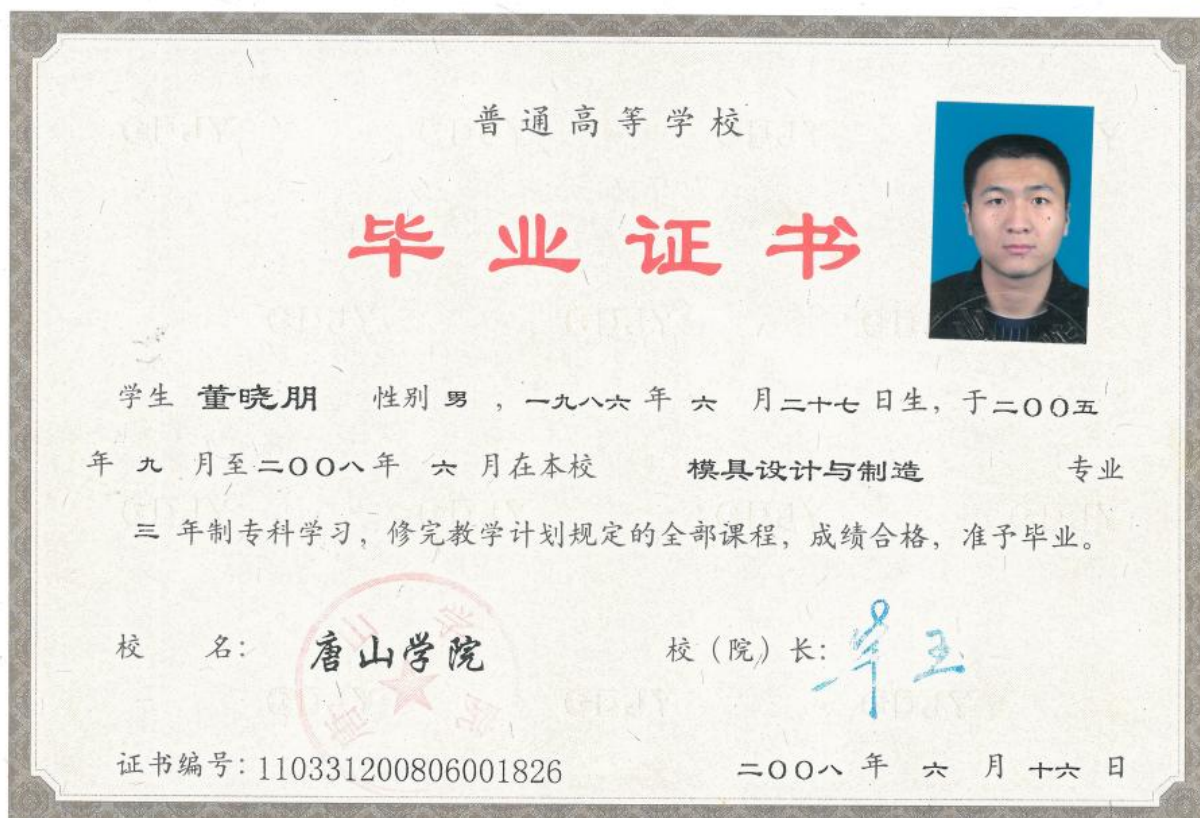 普通高等学校
毕业证书
学生 董晓朋 性别 男 ，一九八六 年 六 月二十七日生，于二〇〇五
年 九 月至二〇〇八年 六 月在本校 模具设计与制造 专业
三 年制专科学习，修完教学计划规定的全部课程，成绩合格，准予毕业。
校 名： 唐山学院 校（院）长：
唐山学院
证书编号：110331200806001826 二〇〇八 年 六 月 十六 日